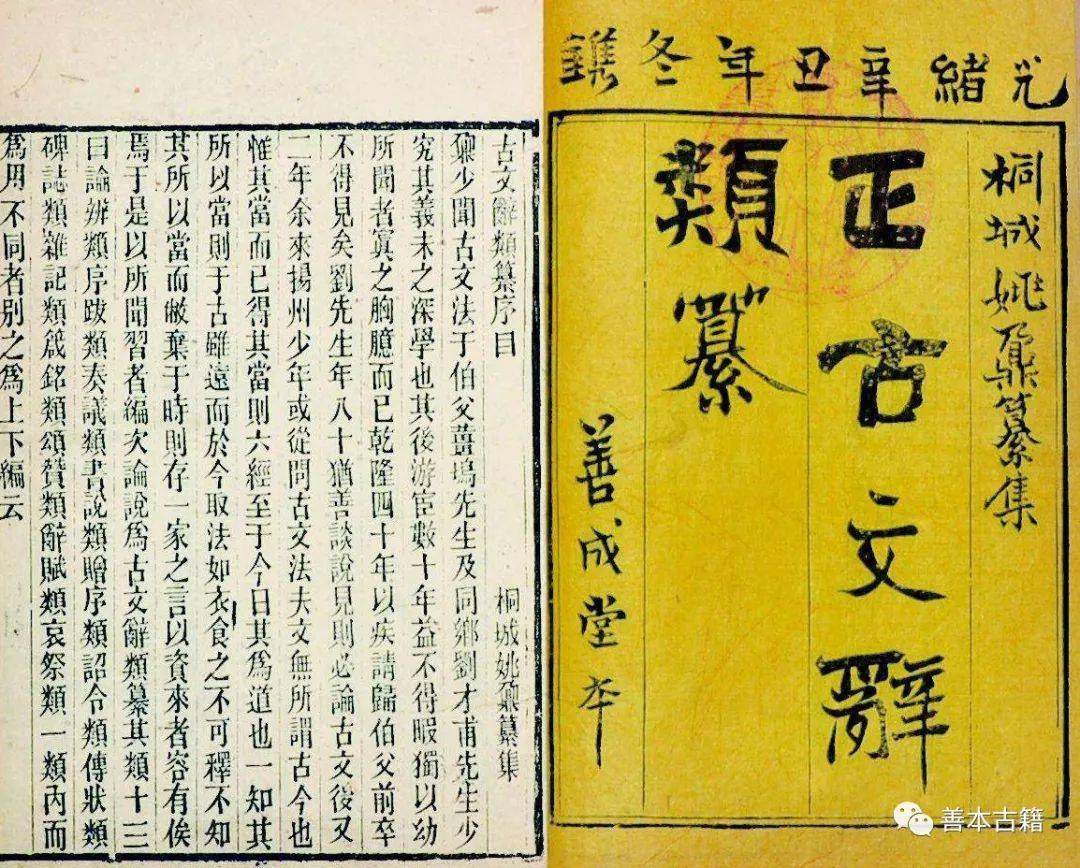 光緒辛丑年冬鐫
桐城姚鼐纂集
正古文辭
類纂
善成堂本
古文辭類纂序目
桐城姚鼐纂集
鼐少聞古文法于伯父薑塢先生及同鄉劉才甫先生少
究其義未之深學也其後游宦數十年益不得暇獨以幼
所聞者寘之胸臆而已乾隆四十年以疾請歸伯父前卒
不得見矣劉先生年八十猶善談說見則必論古文後又
二年余來揚州少年或從問古文法夫文無所謂古今也
惟其當而已得其當則六經至于今日其為道也一知其
所以當則于古雖遠而於今取法如衣食之不可釋不知
其所以當而敝棄于時則存一家之言以資來者容有俟
焉于是以所聞習者編次論說為古文辭類纂其類十三
曰論辨類序跋類奏議類書說類贈序類詔令類傳狀類
碑誌類雜記類箴銘類頌贊類辭賦類哀祭類一類內而
為用不同者別之為上下編云
善本古籍